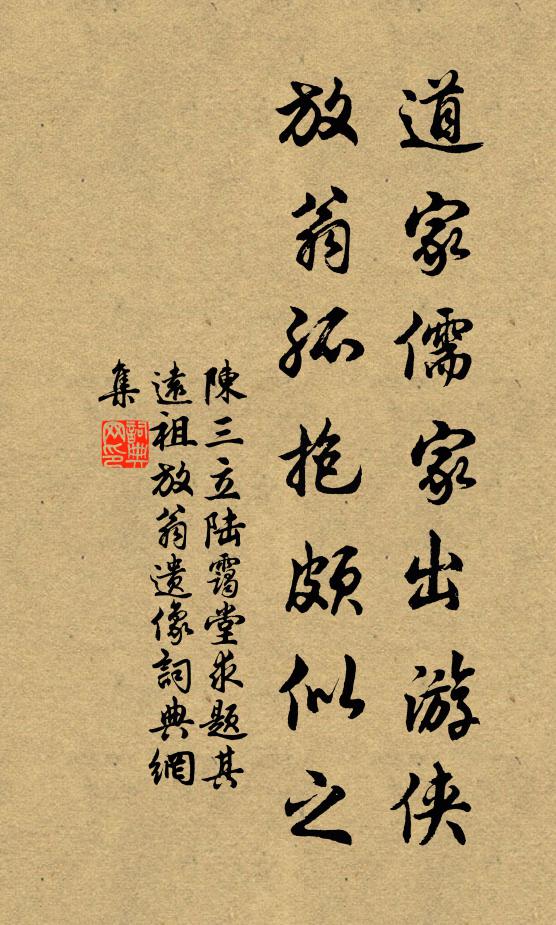 道家儒家出游侠
放翁孤抱頗似之
陳三立陆靄堂求题其
遠祖放翁遺像詞典網
集
詞典
网印